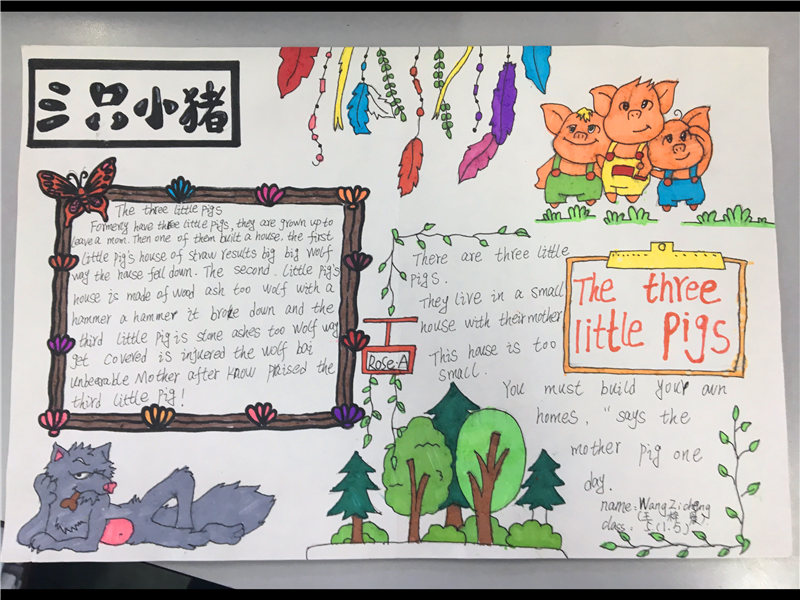 三只小猪
The three little Pigs
Formerly have three little pigs, they are grown up to
leave a mom. Then one of them built a house. the first
little pig's house of straw results big big Wolf
way the house fell down. The second. Little pig's
house is made of wood ash too wolf with a
hammer a hammer it broke down and the
third little pig is stone ashes too wolf way
get covered is injured the wolf bai
unbearable Mother after know praised the
third little pig!
There are three little
pigs.
They live in a small
house with their mother
This house is too
small.
Rose-A
The three
little pigs
You must build your own
homes, "says the
mother pig one
day.
name: Wang Zicheng
class: 5(1.5)